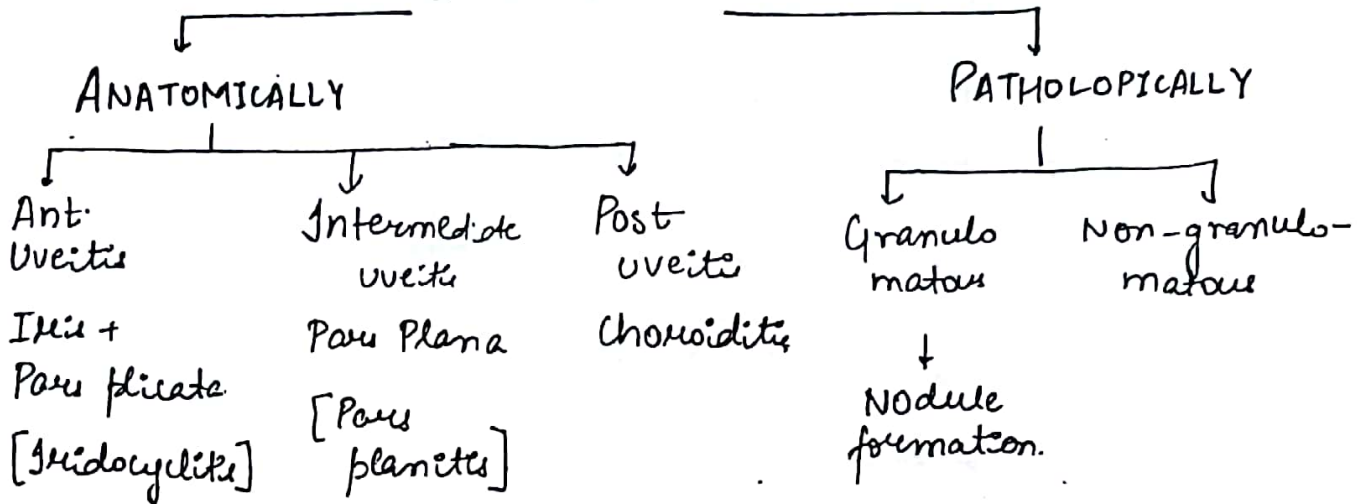 ANATOMICALLY
PATHOLOPICALLY
Ant. Uveitis
Iris + Pars plicata
[Iridocyclitis]
Intermediate uveitis
Pars Plana
[Pars planitis]
Post uveitis
Choroiditis
Granulo
matous
Nodule formation.
Non-granulo-
matous